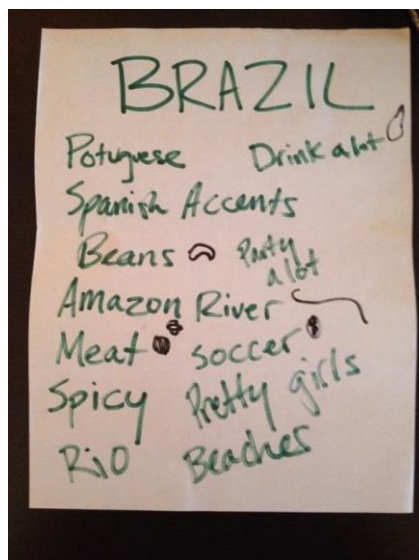 BRAZIL
Potuguese Drink alot
Spanish Accents
Beans Party
a lot
Amazon River
Meat soccer
Spicy Pretty girls
Rio Beaches